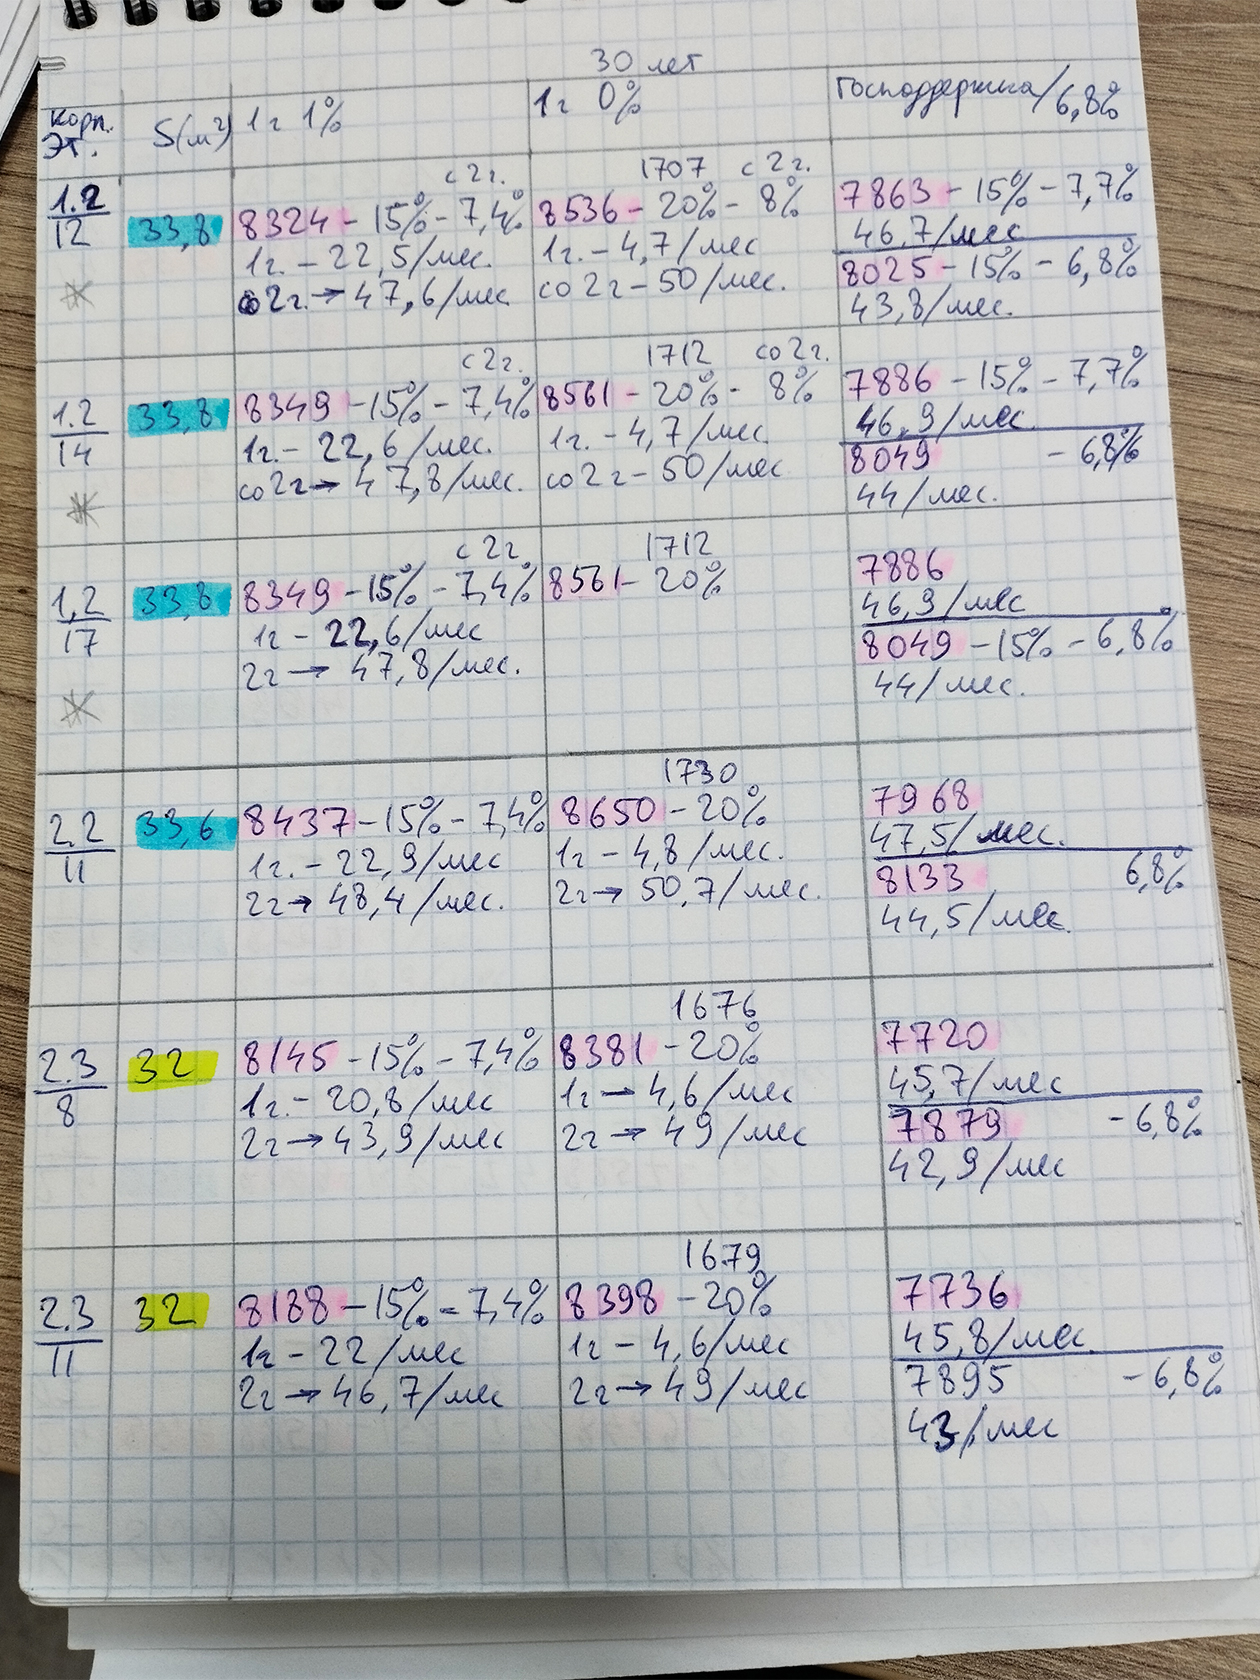 30 лет
Корп. Эт. S(м²) 1г 1% 1г 0% Господдержка/6,8%
с 2г. 1707 с 2г.
1.2/12 33,8 8324 - 15% - 7,4% 8536 - 20% - 8% 7863 - 15% - 7,7%
1г. - 22,5/мес. 1г. - 4,7/мес 46,7/мес
со 2г. → 47,6/мес со 2г - 50/мес. 8025 - 15% - 6,8%
43,8/мес.
с 2г. 1712 со 2г.
1.2/14 33,8 8349 - 15% - 7,4% 8561 - 20% - 8% 7886 - 15% - 7,7%
1г. - 22,6/мес. 1г. - 4,7/мес. 46,9/мес.
со 2г → 47,8/мес. со 2г - 50/мес 8049 - 6,8%
44/мес.
с 2г 1712
1,2/17 33,8 8349 - 15% - 7,4% 8561 - 20% 7886
1г - 22,6/мес 46,9/мес
2г → 47,8/мес. 8049 - 15% - 6,8%
44/мес.
1730
2.2/11 33,6 8437 - 15% - 7,4% 8650 - 20% 7968
1г. - 22,9/мес 1г - 4,8/мес. 47,5/мес.
2г → 48,4/мес. 2г → 50,7/мес. 8133 6,8%
44,5/мес.
1676
2.3/8 32 8145 - 15% - 7,4% 8381 - 20% 7720
1г. - 20,8/мес 1г → 4,6/мес 45,7/мес
2г → 43,9/мес 2г → 49/мес 7879 - 6,8%
42,9/мес
1679
2.3/11 32 8188 - 15% - 7,4% 8398 - 20% 7736
1г - 22/мес 1г - 4,6/мес 45,8/мес.
2г → 46,7/мес 2г → 49/мес 7895 - 6,8%
43/мес